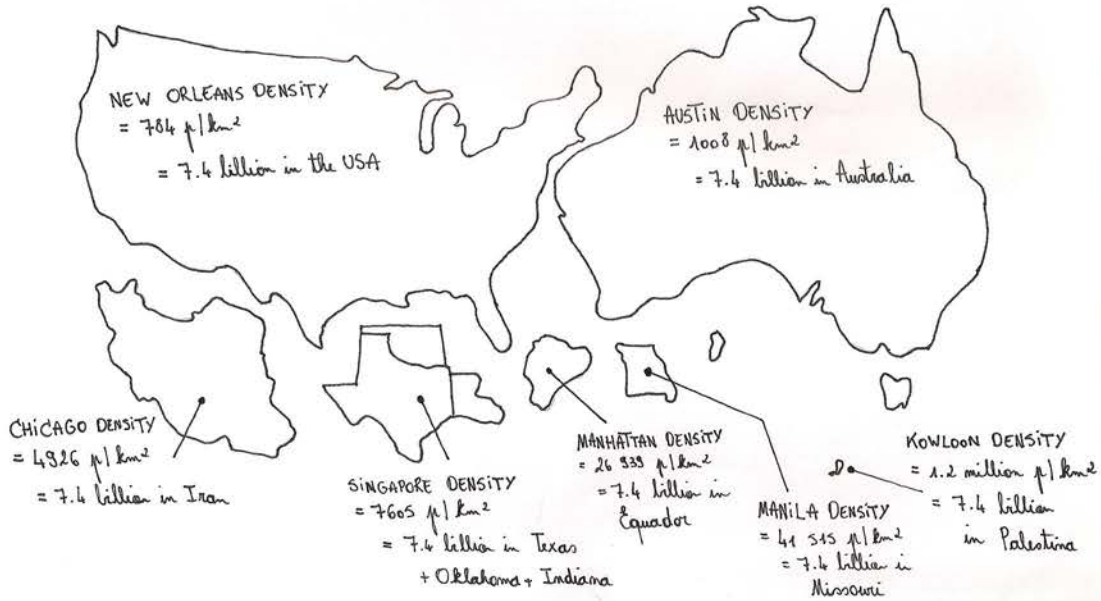 NEW ORLEANS DENSITY
= 784 p/km²
= 7.4 billion in the USA
AUSTIN DENSITY
= 1008 p/km²
= 7.4 billion in Australia
CHICAGO DENSITY
= 4926 p/km²
= 7.4 billion in Iran
SINGAPORE DENSITY
= 7605 p/km²
= 7.4 billion in Texas
+ Oklahoma + Indiana
MANHATTAN DENSITY
= 26 939 p/km²
= 7.4 billion in
Equador
MANILA DENSITY
= 41 515 p/km²
= 7.4 billion in
Missouri
KOWLOON DENSITY
= 1.2 million p/km²
= 7.4 billion
in Palestina